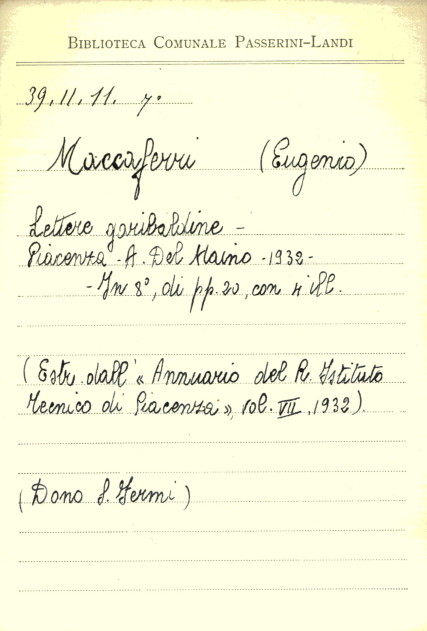 BIBLIOTECA COMUNALE PASSERINI-LANDI
39.II.11. 7.
Maccaferri (Eugenio)
Lettere garibaldine -
Piacenza - A. Del Maino - 1932 -
- In 8°, di pp. 20, con 4 ill.
(Estr. dall'« Annuario del R. Istituto
Tecnico di Piacenza », vol. VII, 1932).
(Dono S. Fermi)